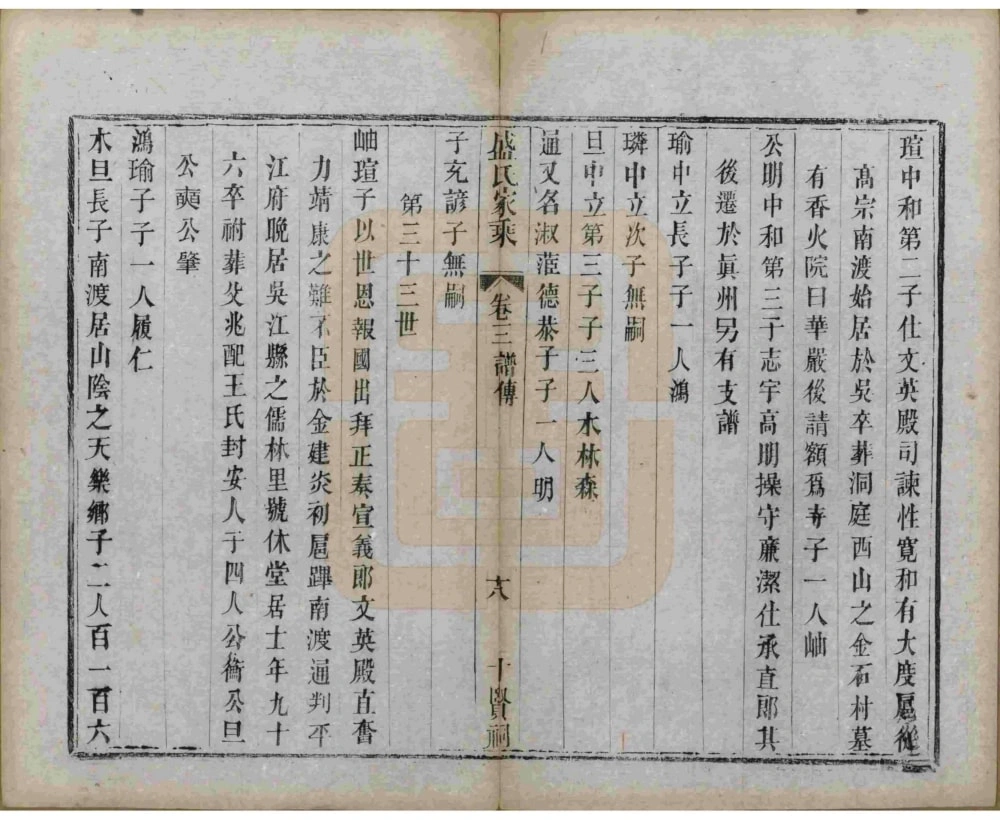 瑄中和第二子仕文英殿司諫性寬和有大度扈從
高宗南渡始居於吳卒葬洞庭西山之金石村墓
有香火院曰華嚴後請額爲寺子一人岫
公明中和第三子志宇高朗操守亷潔仕承直郎其
後遷於眞州另有支譜
瑜中立長子子一人鴻
璘中立次子無嗣
旦中立第三子子三人木林森
逼又名淑蒞德恭子子一人明
子充諺子無嗣
盛氏家乘
卷三譜傳
十八
十賢祠
第三十三世
岫瑄子以世恩報國出拜正奏宣義郎文英殿直奮
力靖康之難不臣於金建炎初扈蹕南渡通判平
江府晚居吳江縣之儒林里號休堂居士年九十
六卒祔葬父兆配王氏封安人子四人公衡公旦
公奭公肇
鴻瑜子子一人履仁
木旦長子南渡居山陰之天樂鄉子二人百一百六